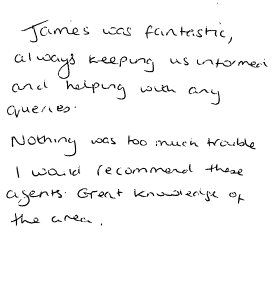 James was fantastic,
always keeping us informed
and helping with any
queries.
Nothing was too much trouble
I would recommend these
agents. Great knowledge of
the area.